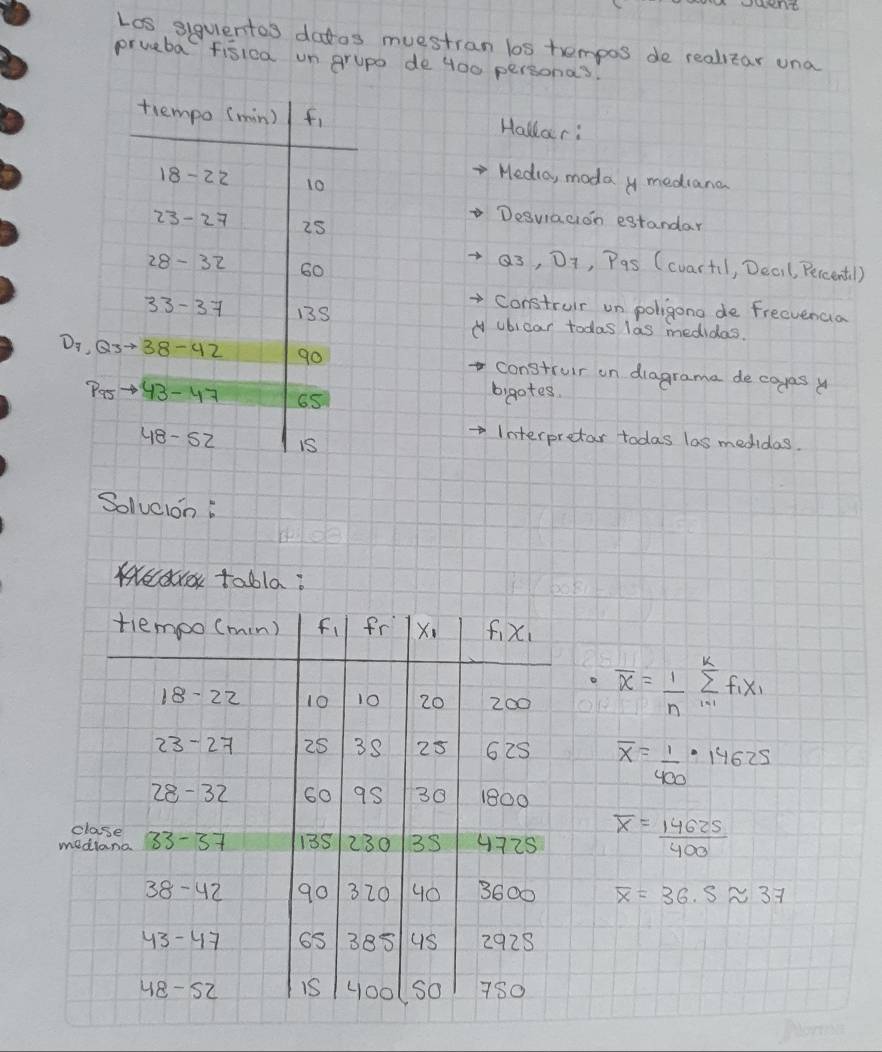 Los siguientos datos muestran los tiempos de realizar una
prueba física un grupo de 400 personas.
tiempo (min) fi
18-22 10
23-27 25
28-32 60
33-37 135
D7, Q3→ 38-42 90
P95→ 43-47 65
48-52 15
Hallar:
→ Media, moda y mediana
→ Desviación estandar
→ Q3, D7, P95 (cuartil, Decil, Percentil)
→ Construir un poligono de frecuencia
y ubicar todas las medidas.
→ Construir un diagrama de cajas y
bigotes.
→ Interpretar todas las medidas.
Solución:
tabla:
tiempo (min) fi fr xi fixi
18-22 10 10 20 200
23-27 25 35 25 625
28-32 60 95 30 1800
clase mediana 33-37 135 230 35 4725
38-42 90 320 40 3600
43-47 65 385 45 2925
48-52 15 400 50 750
• x̄ = 1/n K Σ i=1 fixi
x̄ = 1/400 • 14625
x̄ = 14625/400
x̄ = 36.5 ≈ 37
Norma